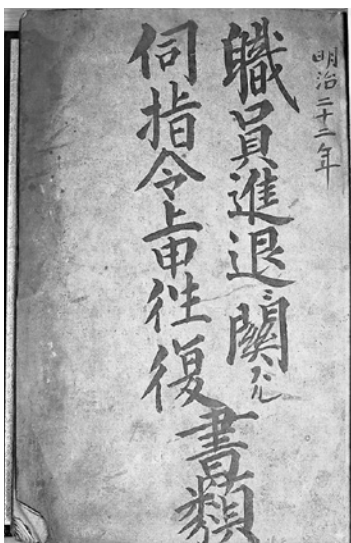 明治二十二年
職員進退ニ関スル
伺指令上申往復
書類